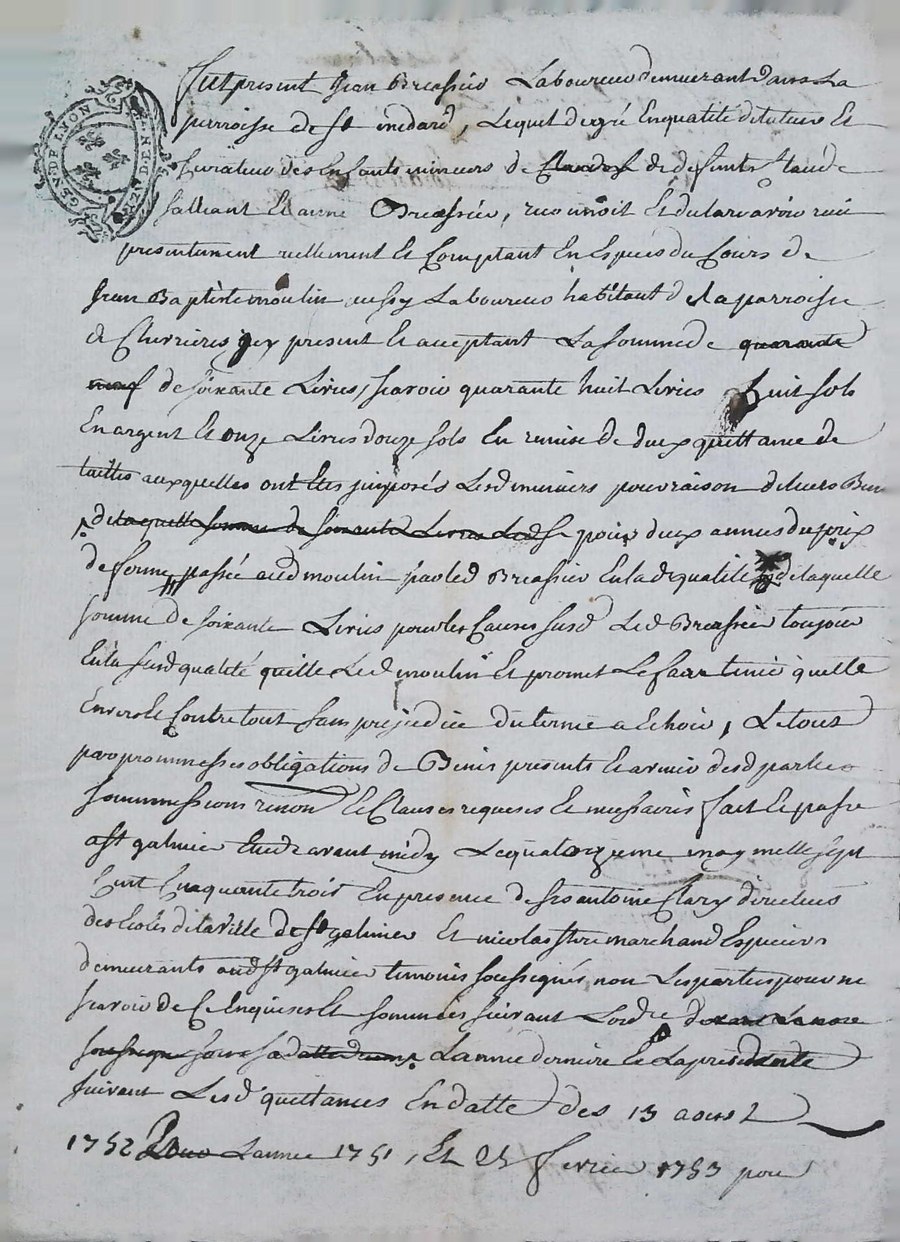 GEN. DE LYON
Fut present Jean Bressieu Laboureur demeurant dans La
parroisse de st medard, Lequel de gré En qualité de tuteur Et
Curateur des Enfants mineurs de de deffunts Claude
Et anne Bressieu, reconnoit Et declare avoir reçu
presentement reellement Et Comptant En Especes du Cours de
Jean Baptiste moulin aussy Laboureur habitant de La parroisse
de Chevrieres jcy present Et acceptant La somme de quarante
neuf de soixante Livres, scavoir quarante huit Livres huit sols
En argent Et onze Livres douze sols En remise de deux quittance de
tailles auxquelles ont Etes jmposés Lesd mineurs pour raison de leurs Biens
de laquelle somme de soixante Livres Led pour deux années du prix
de ferme passée aud moulin par led Bressieu En lad qualité de laquelle
somme de soixante Livres pour les Causes susd Led Bressieu toujour
En la susd qualité quitte Led moulin Et promet Le faire tenir quitte
Envers Et Contre tout sans prejudice du terme a Echoir, Le tout
par promesses obligations de Biens presents Et a venir desd parties
soummissions renon Et Clauses requises Et necessaires fait Et passé
a st galmier Etude avant midy Le quatorzieme may mille sept
Cent Cinquante trois En presence de srs antoine Clary directeur
des Ecoles de la ville de st galmier Et nicolas marchand Espicier
demeurants aud st galmier temoins soussignés non Les parties pour ne
scavoir de Ce Enquises Et sommées suivant Lordre
L'année derniere Et La presente
suivant Lesd quittances En datte des 13 aoust
1752 Pour L'année 1751, Et 25 fevrier 1753 pour